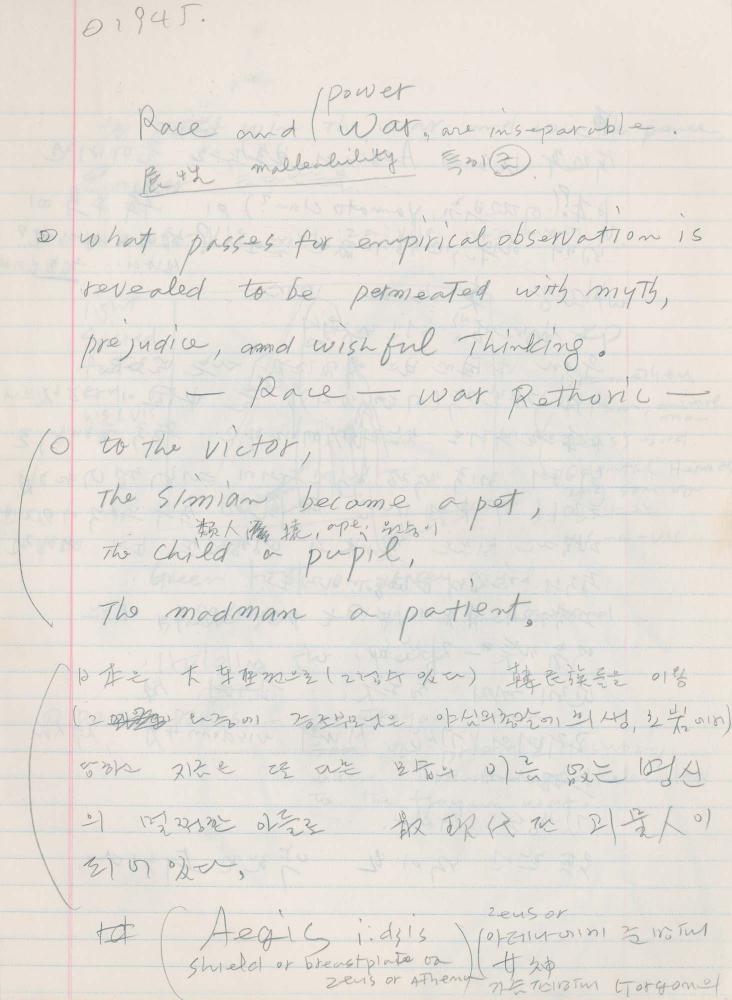 1945.
power
Race and War, are inseparable.
展性 malleability 특이
what passes for empirical observation is
revealed to be permeated with myth,
prejudice, and wishful Thinking.
— Race — war Rethoric —
to the victor,
The simian became a pet,
類人猿, ape, 원숭이
The child a pupil,
The madman a patient.
日本은 大 (그럴수 있다) 韓民族들을 이용
(그 와중에 은 야심의 칼날에 희생,
당하고 지금은 또 다른 모습의 이름 없는 병신
의 멀쩡한 아들로 最現代 괴물人이
되어 있다.
Aegis i:dʒis
zeus or
shield or breastplate on
아테나에게 준 방패
zeus or Athena
女神